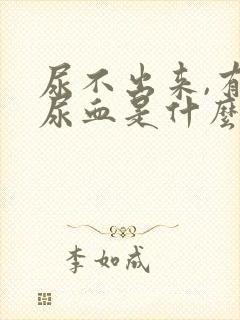 尿不出来,有
尿血是什麼
李如成